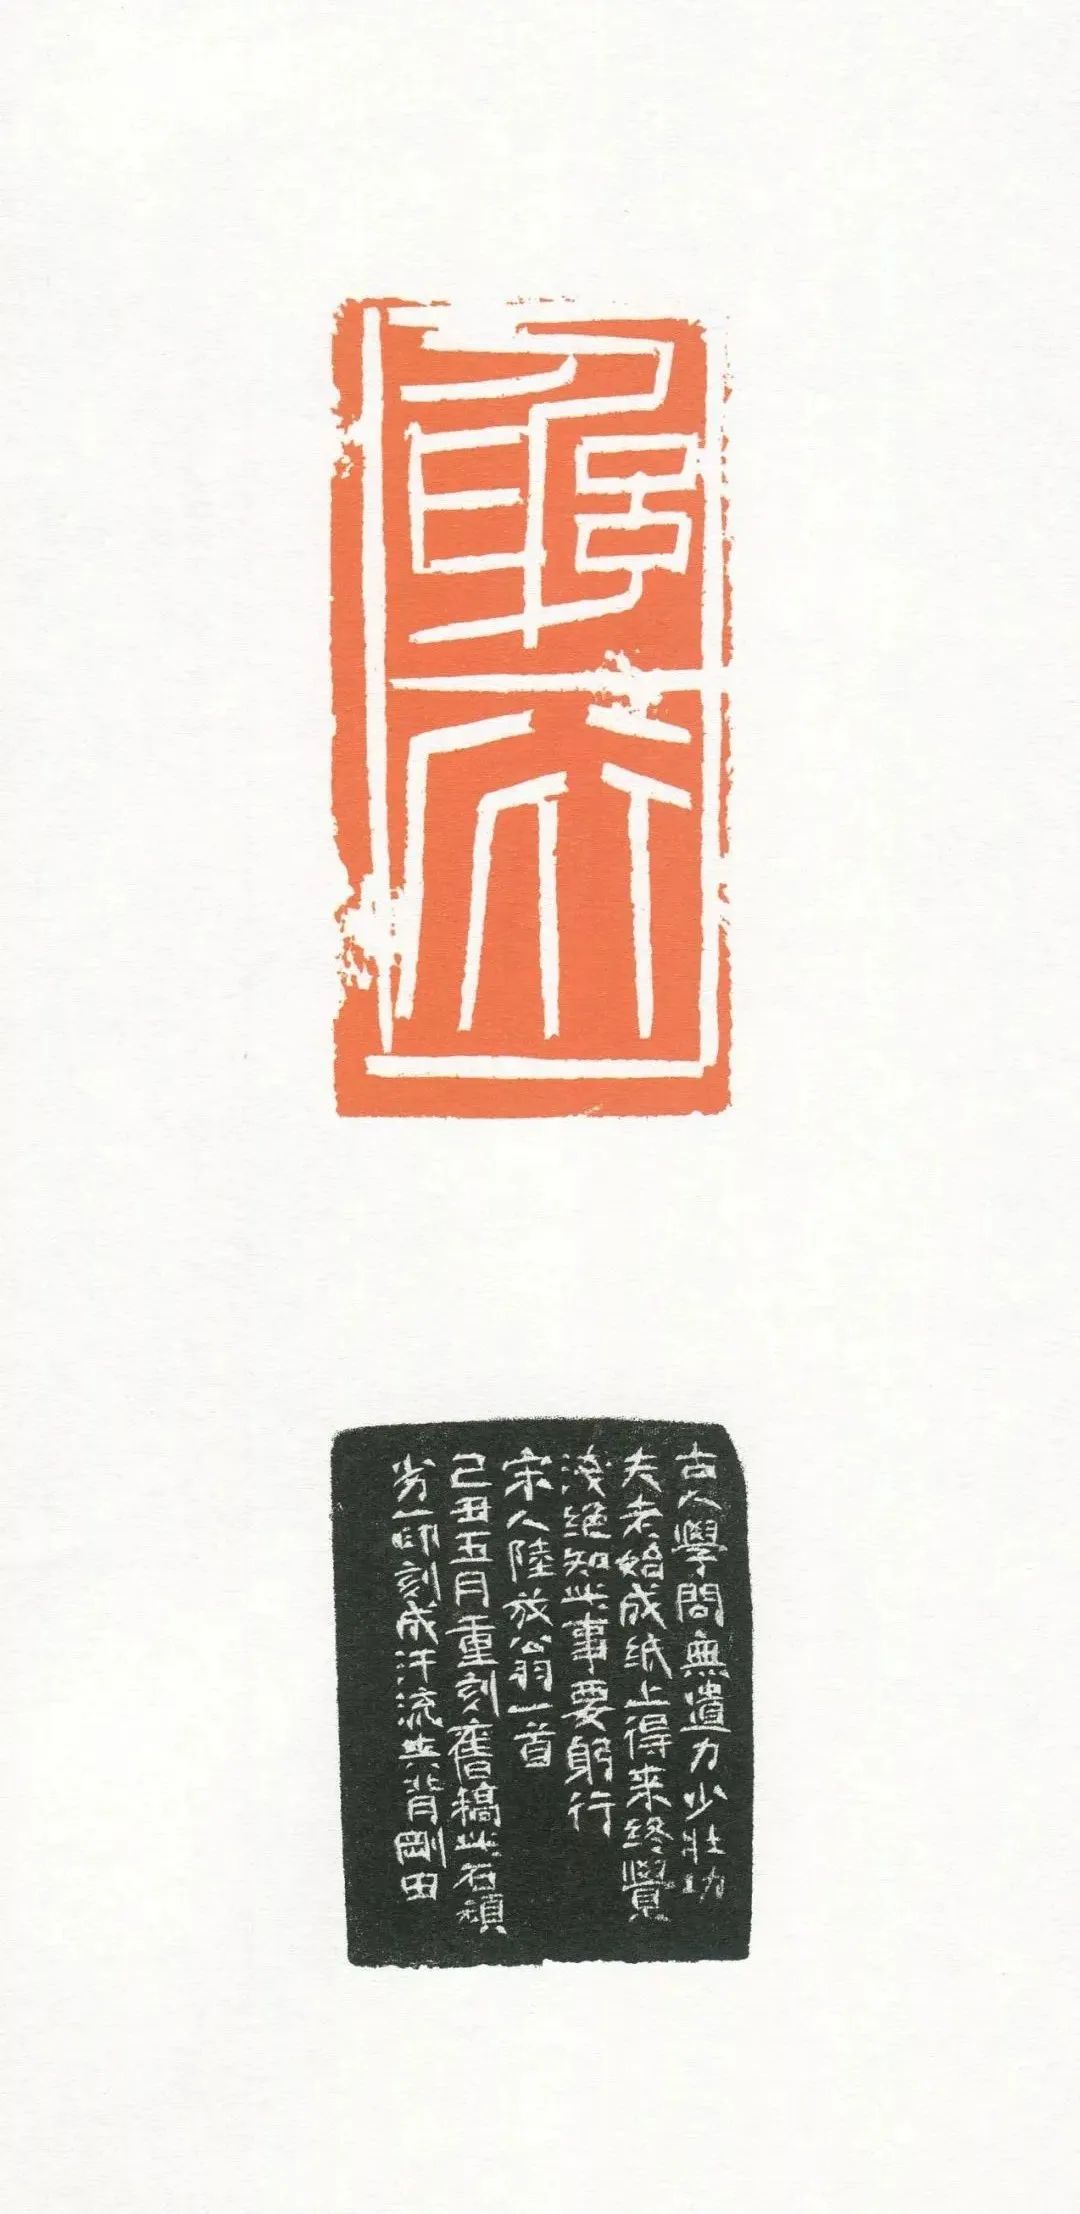 躳行
古人學問無遺力少壯功
夫老始成纸上得来终覺
淺绝知此事要躬行
宋人陸放翁一首
己丑五月重刻舊稿此石頑
劣一印刻成汗流浃背剛田